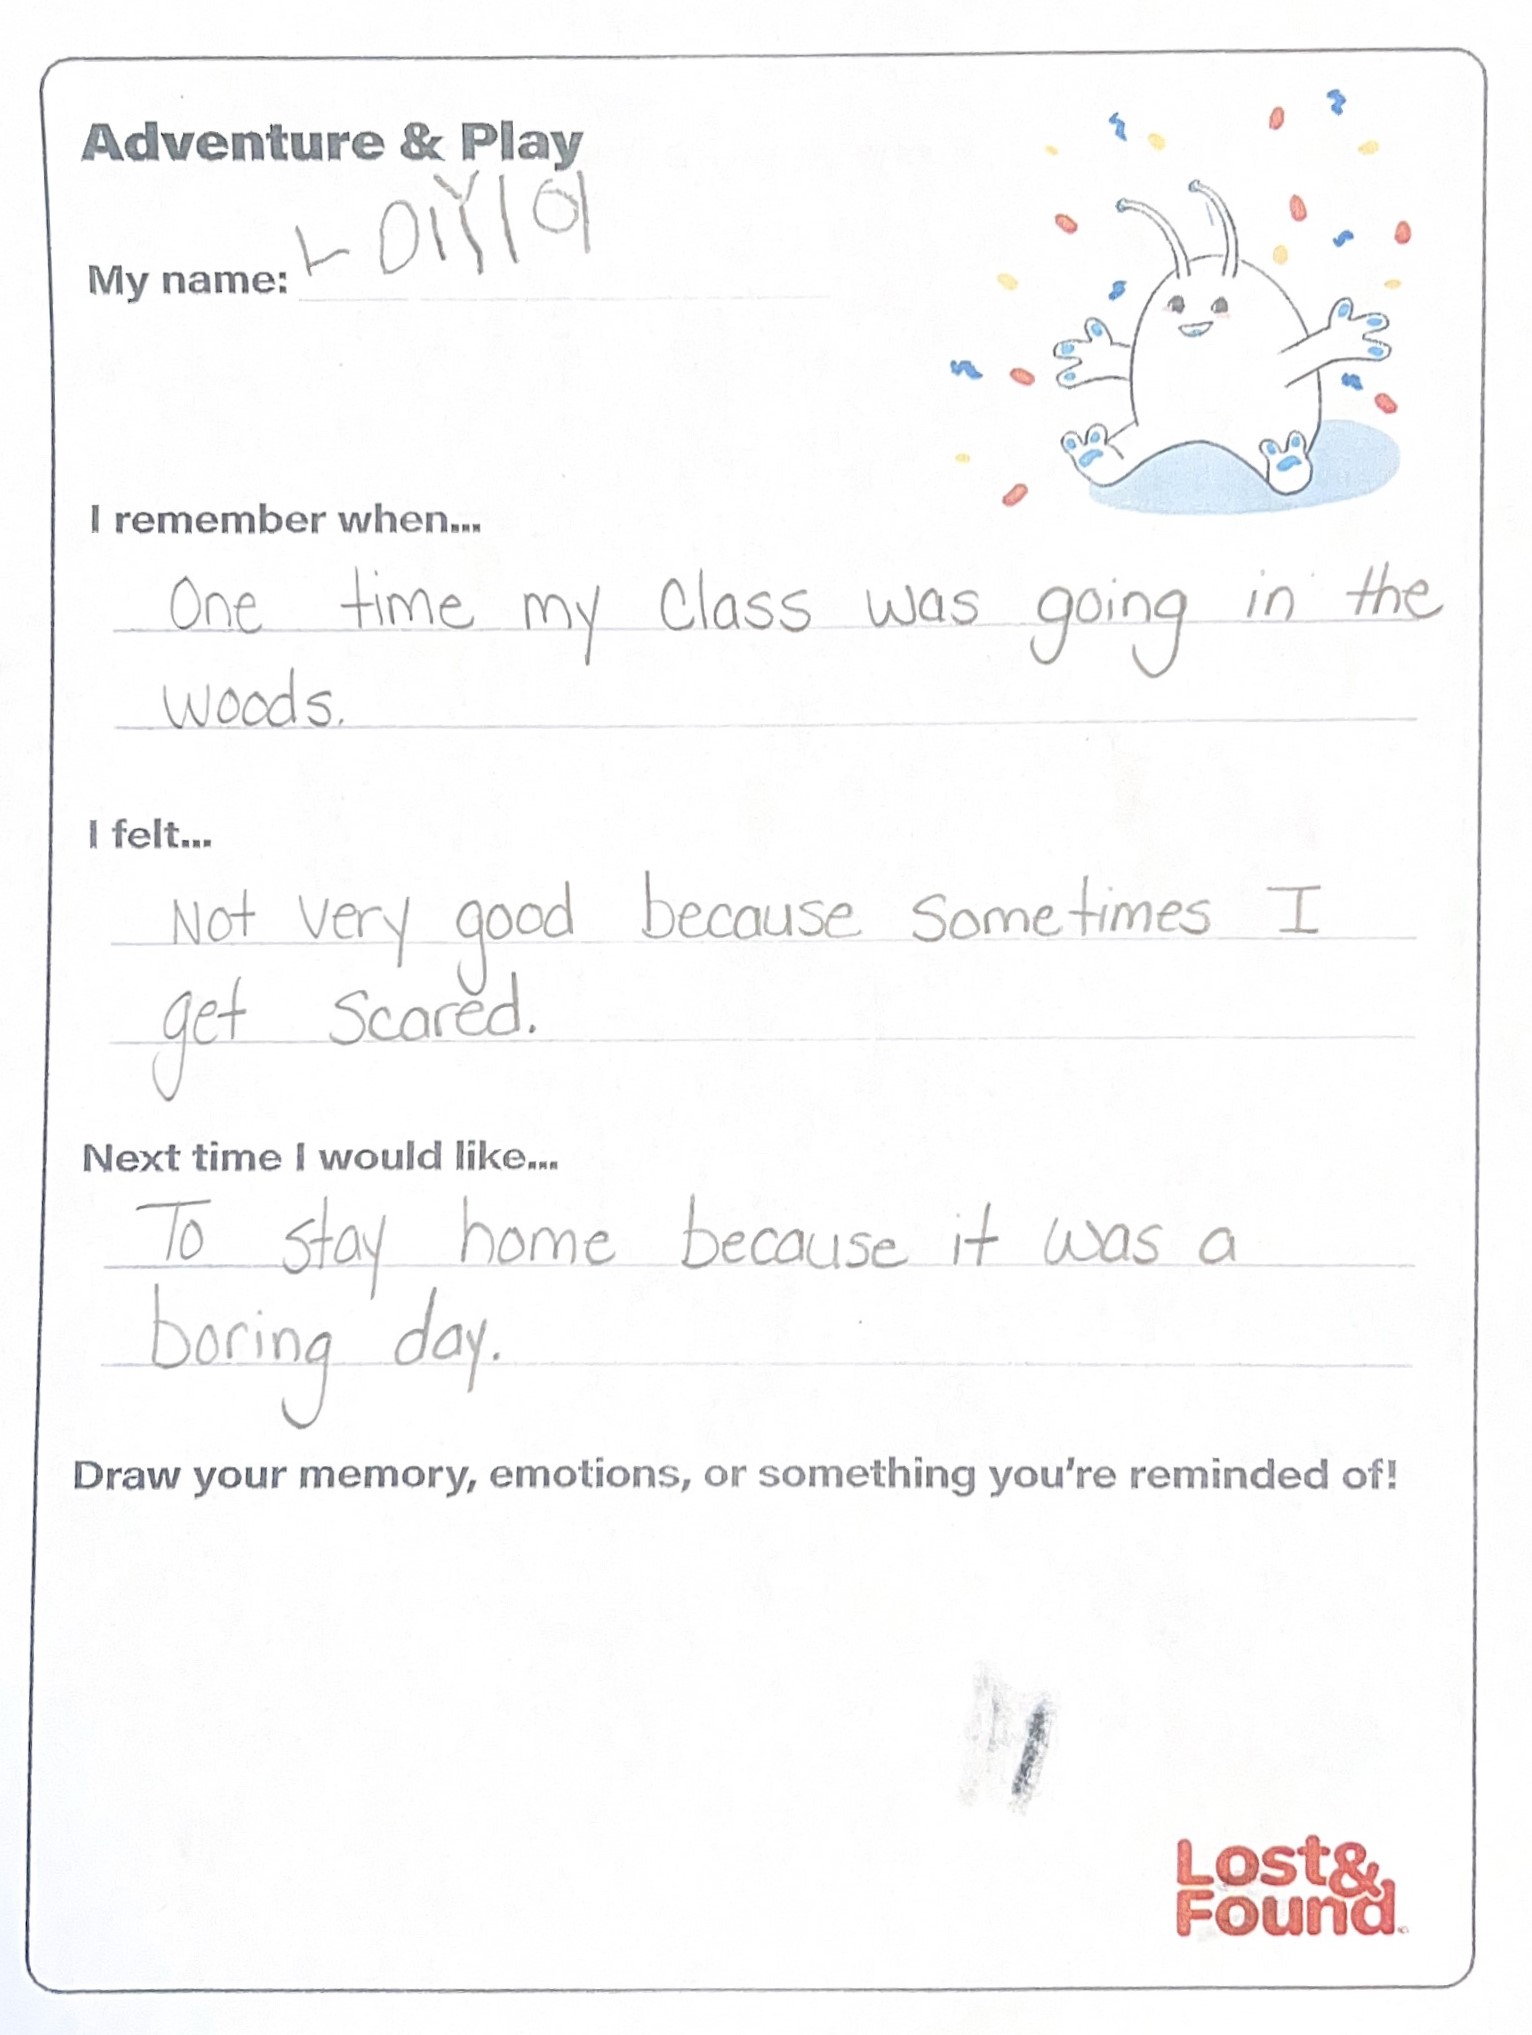 Adventure & Play
My name: Layla
I remember when...
One time my class was going in the
woods.
I felt...
Not very good because sometimes I
get scared.
Next time I would like...
To stay home because it was a
boring day.
Draw your memory, emotions, or something you're reminded of!
Lost&
Found